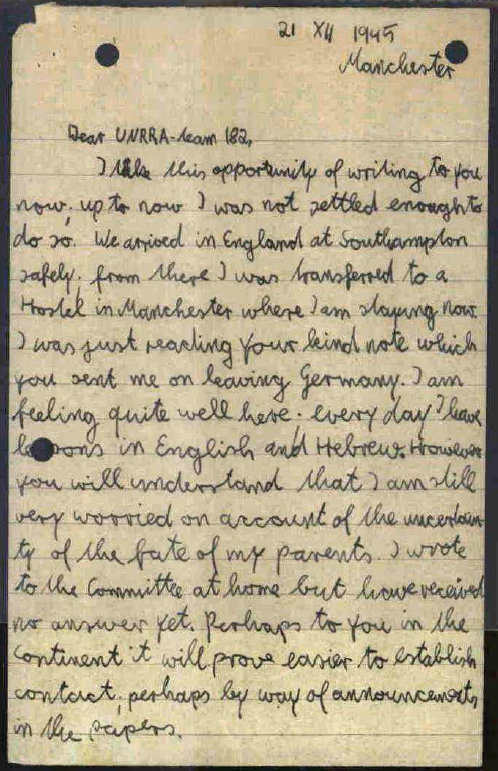 21 XII 1945
Manchester
Dear UNRRA-team 182,
I take this opportunity of writing to you
now; up to now I was not settled enough to
do so. We arrived in England at Southampton
safely; from there I was transferred to a
Hostel in Manchester where I am staying now
I was just reading your kind note which
you sent me on leaving Germany. I am
feeling quite well here; every day I have
lessons in English and Hebrew. However
you will understand that I am still
very worried on account of the uncertain
ty of the fate of my parents. I wrote
to the Committee at home but have received
no answer yet. Perhaps to you in the
Continent it will prove easier to establish
contact; perhaps by way of announcements
in the papers.